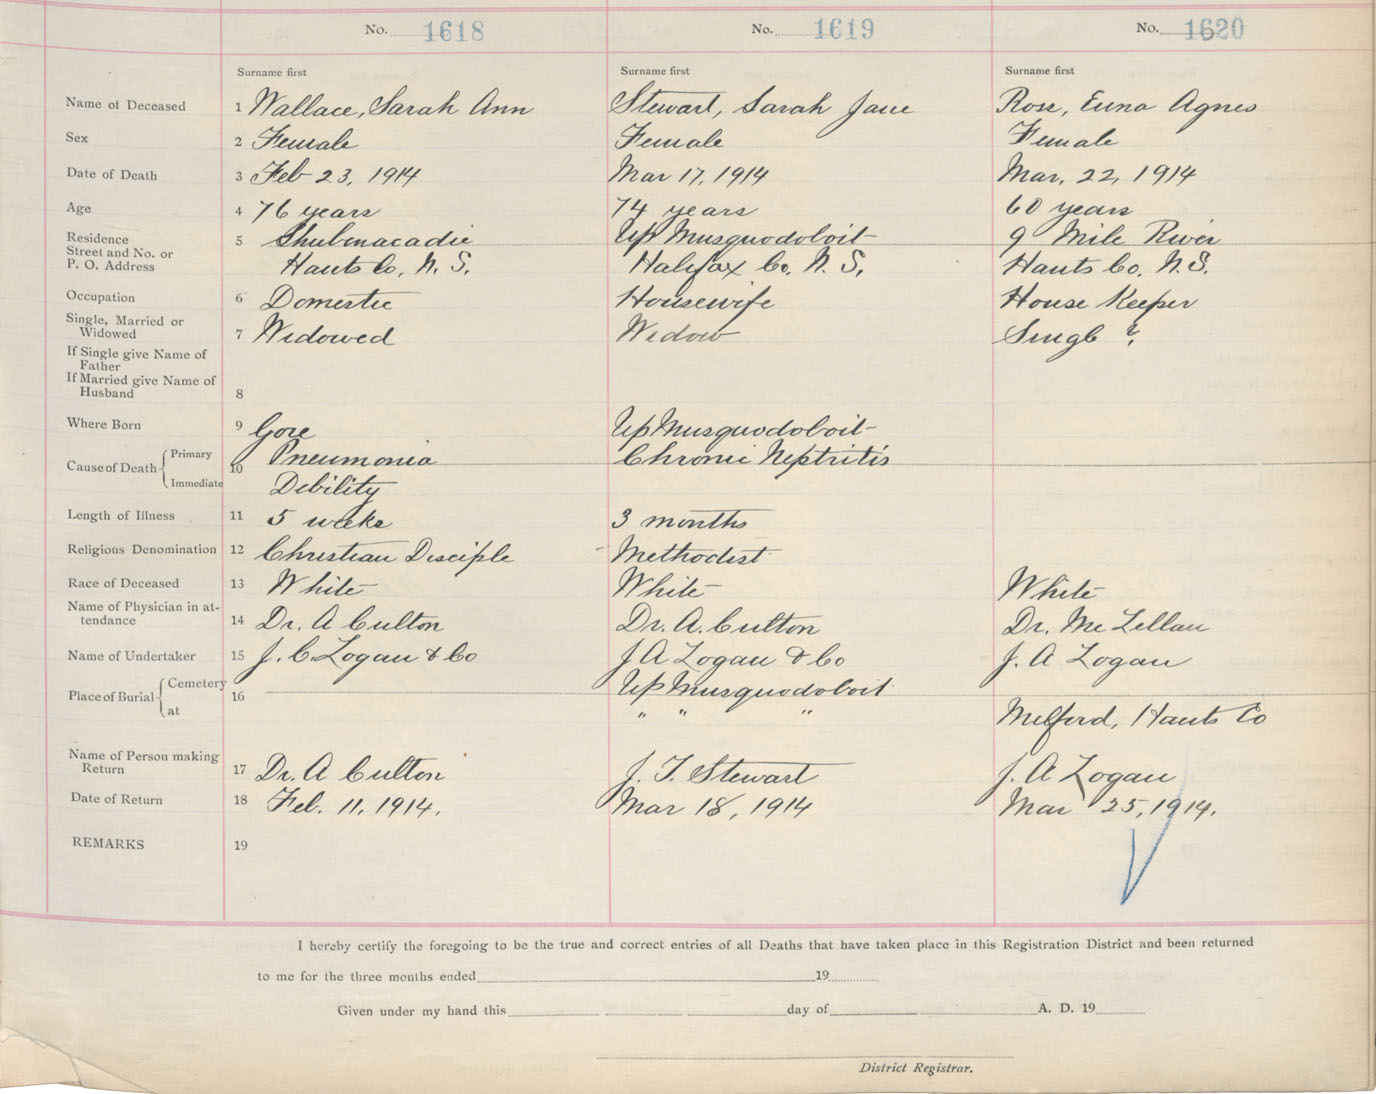 No. 1618 No. 1619 No. 1620
Surname first Surname first Surname first
Name of Deceased 1 Wallace, Sarah Ann Stewart, Sarah Jane Rose, Euna Agnes
Sex 2 Female Female Female
Date of Death 3 Feb 23, 1914 Mar 17, 1914 Mar, 22, 1914
Age 4 76 years 74 years 60 years
Residence 5 Shubenacadie Up Musquodoboit 9 Mile River
Street and No. or
P. O. Address Hants Co, N. S. Halifax Co, N. S, Hants Co, N. S.
Occupation 6 Domestic Housewife House Keeper
Single, Married or
Widowed 7 Widowed Widow Single ?
If Single give Name of
Father
If Married give Name of
Husband 8
Where Born 9 Gore Up Musquodoboit
Cause of Death Primary 10 Pneumonia Chronic Neptritis
Immediate Debility
Length of Illness 11 5 weeks 3 months
Religious Denomination 12 Christian Disciple Methodist
Race of Deceased 13 White White White
Name of Physician in at-
tendance 14 Dr. A Culton Dr. A. Culton Dr. McLellan
Name of Undertaker 15 J. C. Logan & Co J A Logan & Co J. A Logan
Place of Burial Cemetery 16 Up Musquodoboit
at " " " Melford, Hants Co
Name of Person making
Return 17 Dr. A Culton J. T. Stewart J. A Logan
Date of Return 18 Feb. 11, 1914. Mar 18, 1914 Mar 25, 1914.
REMARKS 19
I hereby certify the foregoing to be the true and correct entries of all Deaths that have taken place in this Registration District and been returned
to me for the three months ended 19
Given under my hand this day of A. D. 19
District Registrar.